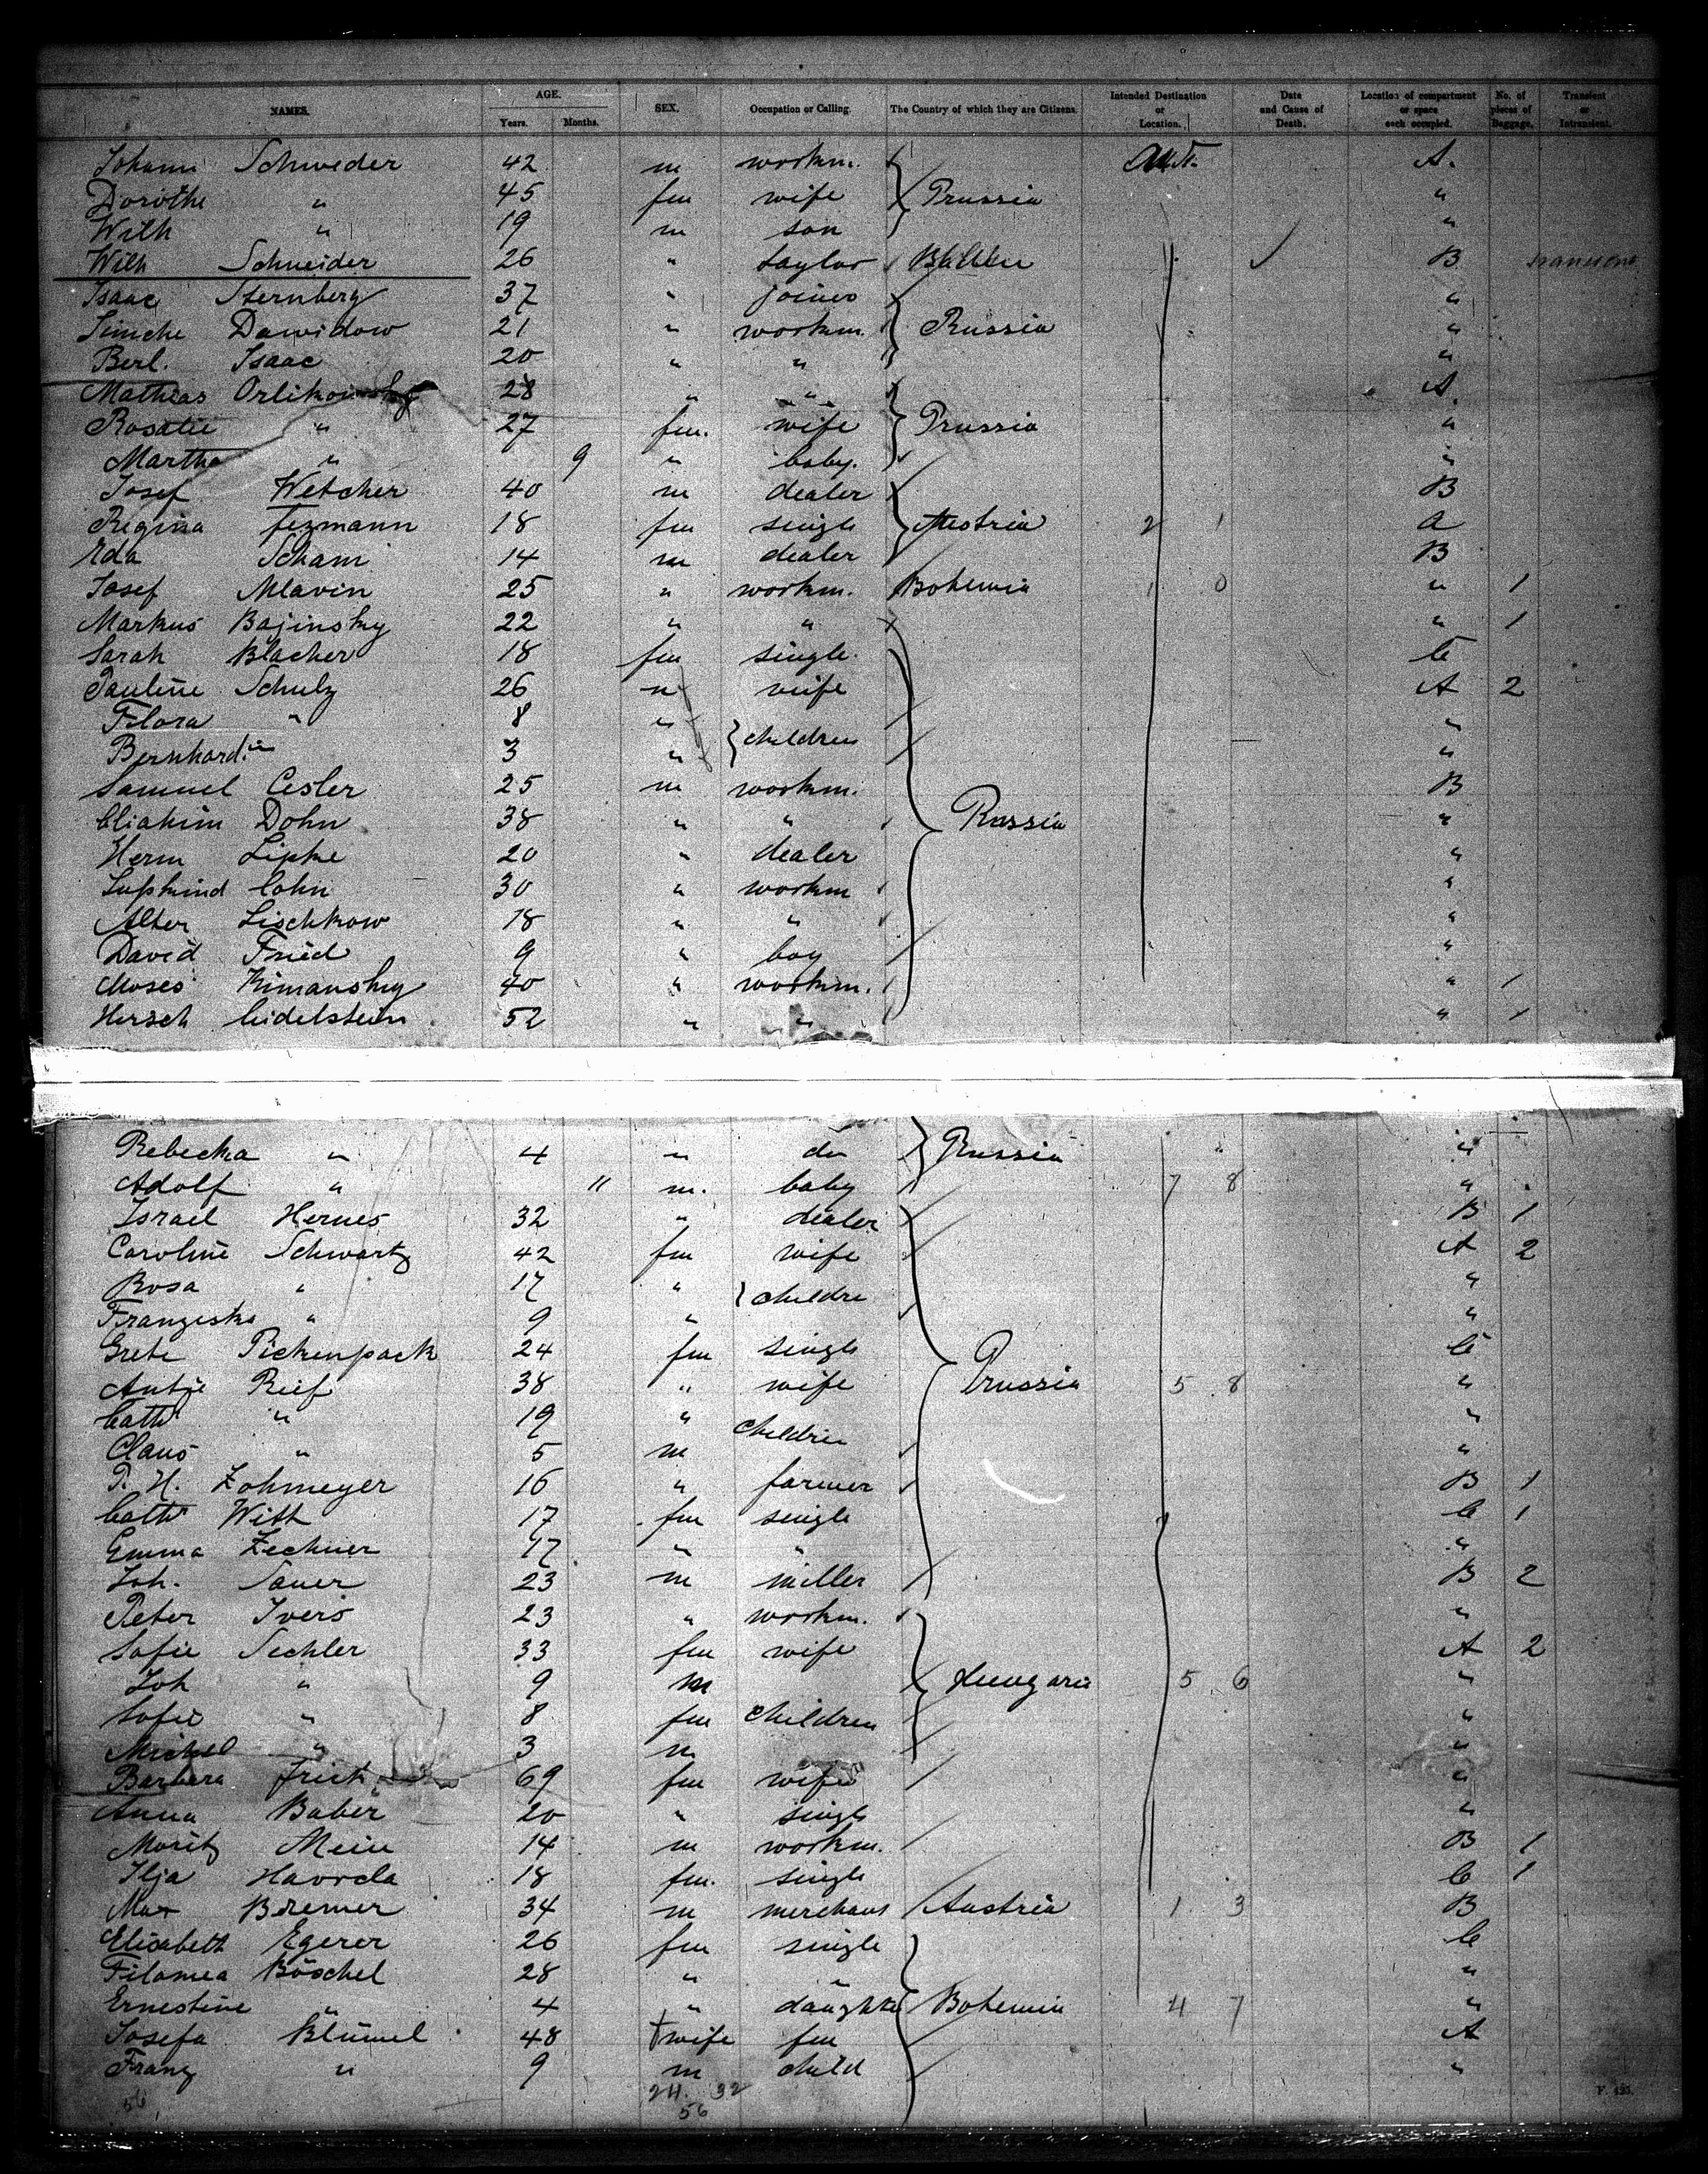 NAMES. AGE. Years. Months. SEX. Occupation or Calling. The Country of which they are Citizens. Intended Destination or Location. Date and Cause of Death. Location of compartment or space each occupied. No. of pieces of Baggage. Transient or Intransient.
Johann Schweder 42 m workm. A.
Dorothe " 45 fm wife Prussia "
Wilh " 19 m son "
Wilh Schneider 26 " taylor B
Isaac Sternberg 37 " joiner "
Simche Dawidow 21 " workm. Russia "
Berl. Isaac 20 " " "
Mathias Orlikowsky 28 " " A.
Rosalie " 27 fm. wife Prussia "
Martha " 9 " baby. "
Josef Wetcher 40 m dealer B
Regina Fezmann 18 fm single Austria 2 1 a
Eda Scham 14 m dealer B
Josef Mlavin 25 " workm. Bohemia 1 0 " 1
Markus Bajinsky 22 " " " 1
Sarah Blacher 18 fm single. C
Pauline Schulz 26 " wife A 2
Flora " 8 " children "
Bernhard. " 3 " "
Samuel Cesler 25 m workm. B
Eliakim Dohn 38 " " Russia "
Herm Lipke 20 " dealer "
Supkind Cohn 30 " workm "
Alter Lischkow 18 " " "
David Fried 9 " boy "
Moses Rimansky 40 " workm. " 1
Hersch Eidelstein 52 " " " 1
Rebecka " 4 " do Russia " "
Adolf " 11 m. baby 7 8 "
Israel Hernes 32 " dealer B 1
Caroline Schwartz 42 fm wife A 2
Rosa " 17 " children "
Franziska " 9 " "
Grete Pickenpack 24 fm single C
Antje Reif 38 " wife Prussia 5 8 "
Cath " 19 " children "
Claus " 5 m "
P. H. Zohmeyer 16 " farmer B 1
Cath Witt 17 fm single C 1
Emma Zechner 17 " " "
Joh. Sauer 23 m miller B 2
Peter Ivers 23 " workm. "
Sofie Sechler 33 fm wife A 2
Joh " 9 m Hungaria 5 6 "
Sofie " 8 fm children "
Michel " 3 m "
Barbara Frich 69 fm wife "
Anna Baber 20 " single "
Moritz Mein 14 m workm. B 1
Ilja Havrda 18 fm. single C 1
Max Bremer 34 m merchant Austria 1 3 B
Elisabeth Egerer 26 fm single C
Filomea Böschel 28 " " "
Ernestine " 4 " daughter Bohemia 4 7 "
Josefa Blümel 48 wife fm A
Franz " 9 m child "
56 24. 32
56
F. 495.